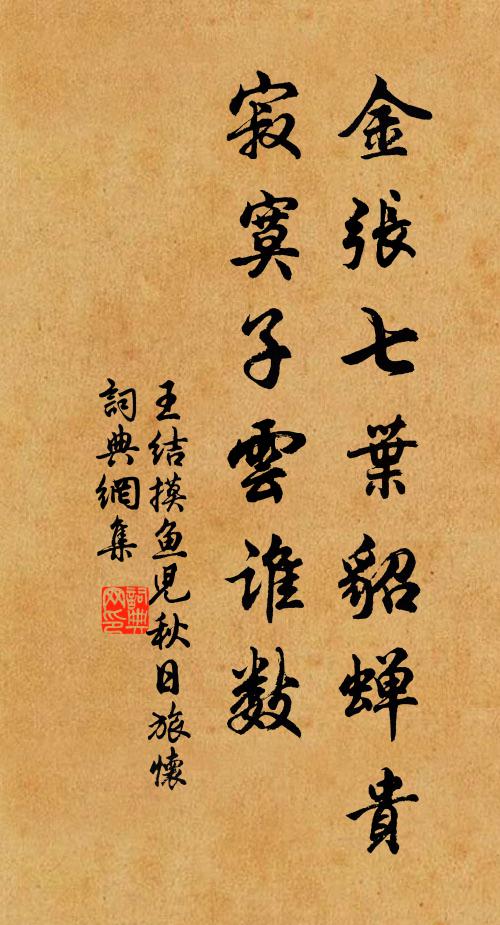 金張七葉貂蟬貴
寂寞子雲誰數
王結摸魚兒秋日旅懷
詞典網集
詞典网印